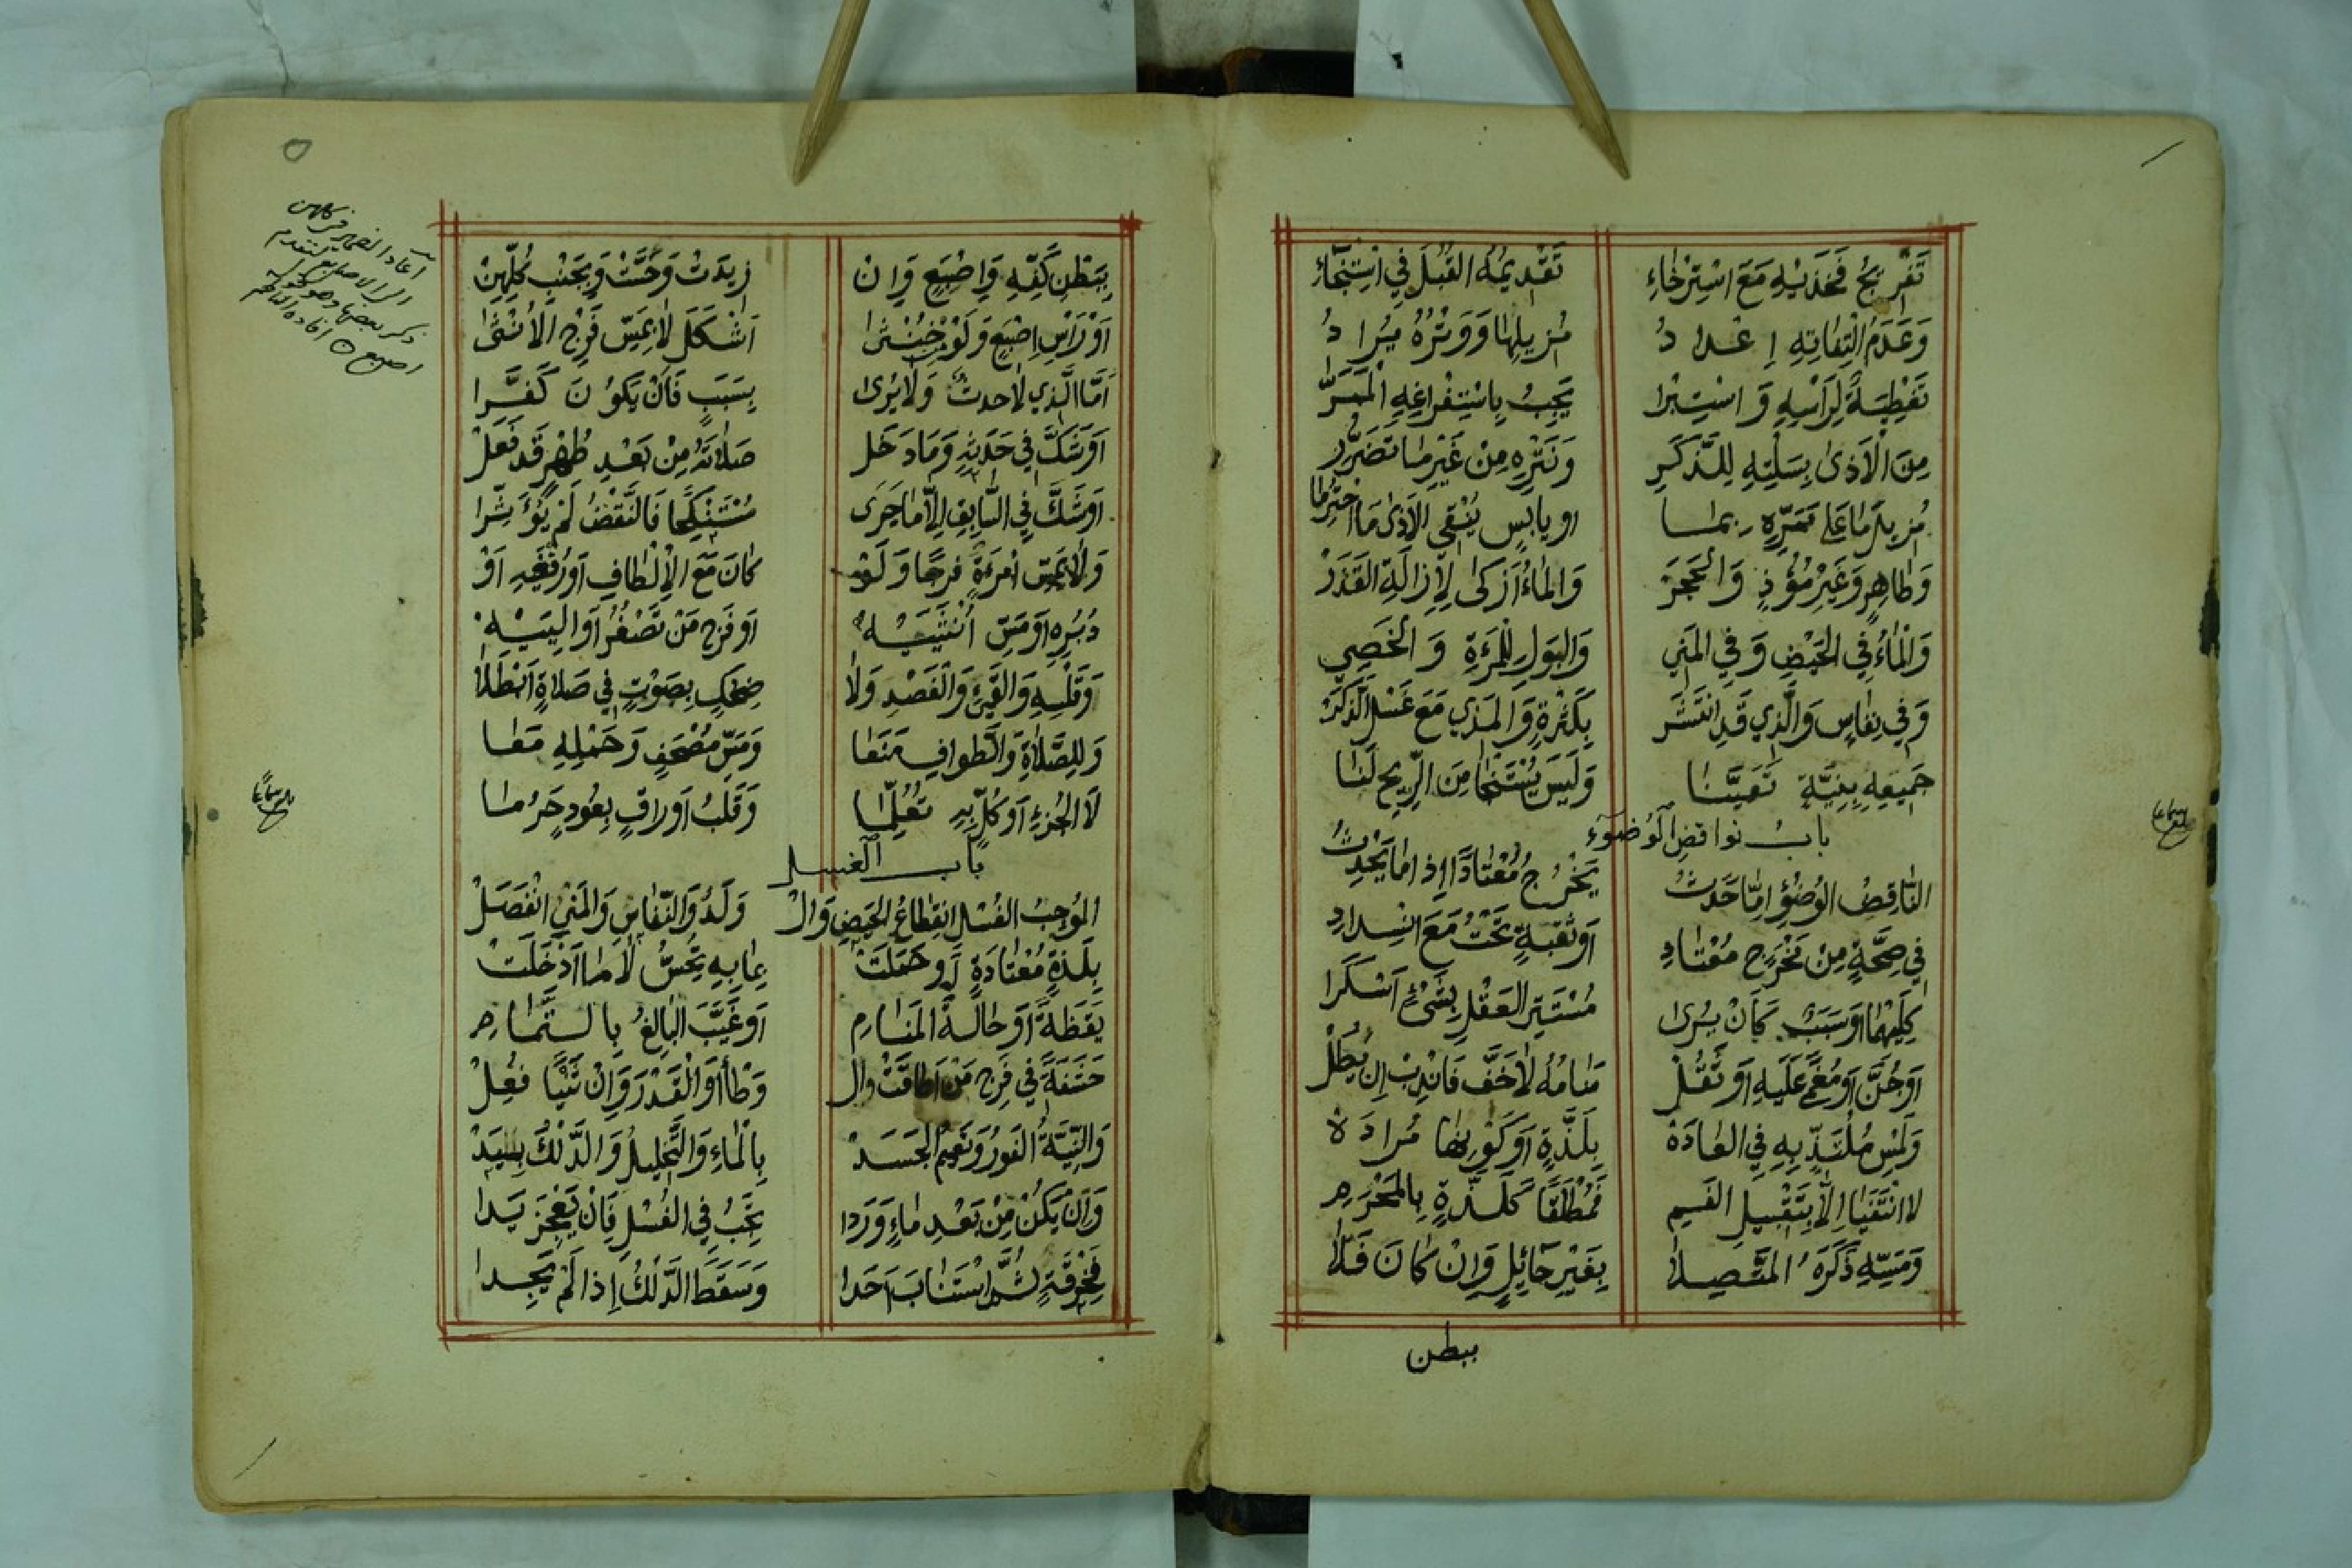 تَفْرِيجُ فَخْذَيْهِ مَعَ اسْتِرْخَاءِ تَقْدِيمُهُ القُبُلَ فِي اسْتِنْجَاءِ
وَعَدَمُ الْتِفَاتِهِ إِعْدَادُ مُزِيلِهَا وَوَتْرُهُ يُرَادُ
تَغْطِيَةٌ لِرَأْسِهِ وَاسْتِبْرَا يَجِبُ بِاسْتِفْرَاغِهِ الْمَمَرَّا
مِنَ الْأَذَى بِسَلْتِهِ لِلذَّكَرِ وَنَتْرِهِ مِنْ غَيْرِ مَا تَضَرُّرِ
مُزِيلَ مَا عَلَى مَمَرِّهِ بِمَا او يابس يُنْقِي الأَذَى مَا احْتُرِمَا
وَطَاهِرٍ وَغَيْرِ مُؤْذٍ وَالْحَجَرْ وَالمَاءُ أَزْكَى لِإِزَالَةِ القَذَرْ
وَالْمَاءُ فِي الحَيْضِ وَفِي المَنِي وَالبَوْلِ لِلْمَرْءَةِ وَالْخَصِي
وَفِي نِفَاسٍ وَالَّذِي قَدِ انْتَشَرْ بِكَثْرَةٍ وَالمَذْيِ مَعَ غَسْلِ الذَّكَرْ
جَمِيعِهِ بِنِيَّةٍ تَعَيَّنَا وَلَيْسَ يُسْتَنْجَا مِنَ الرِّيحِ لَنَا
بابُ نواقضِ الْوُضُوْءِ
النَّاقِضُ الوُضُوْءَ إِمَّا حَدَثُ يَخْرُجُ مُعْتَادًا إِذَا مَا يَحْدِثُ
فِي صِحَّةٍ مِنْ مَخْرَجٍ مُعْتَادِ أَوْ ثُقْبَةٍ تَحْتُ مَعَ انْسِدَادِ
كِلَيْهِمَا أَوْ سَبَبٌ كَأَنْ يُرَى مُسْتَتِرَ العَقْلِ بِشَيْءٍ أَسْكَرَا
أَوْ جُنَّ أَوْ مُغْمًى عَلَيْهِ أَوْ ثَقُلْ مَنَامُهُ لَا خَفَّ فَانْدِبْ إِنْ يُطَلْ
وَلَمْسِ مُلْتَذٍّ بِهِ فِي العَادَةْ بِلَذَّةٍ أَوْ كَوْنِهَا مُرَادَةْ
لا انْتَفَيَا إِلَّا بِتَقْبِيلِ الفَمِ فَمُطْلَقًا كَلَذَّةٍ بِالمَحْرَمِ
وَمَسِّهِ ذَكَرَهُ المُتَّصِلَا بِغَيْرِ حَائِلٍ وَإِنْ كَانَ فَلَا
ببطن
بلغ سماعا
بِبَطْنِ كَفِّهِ وَإِصْبَعٍ وَإِنْ زِيدَتْ وَحَسَّتْ وَبِجَنْبِ كُلِّهِنْ
أَوْ رَأْسِ إِصْبَعٍ وَلَوْ خُنْثَى أَشْكَلَ لَا بِمَسِّ فَرْجِ الأُنْثَى
أَمَّا الَّذِي لَا حدثٌ وَلَا يُرَى بِسَبَبٍ فَأَنْ يَكُونَ كَفَرَا
أَوْ شَكَّ فِي حَدَثِهِ وَمَا دَخَلْ صَلَاتَهُ مِنْ بَعْدِ طُهْرٍ قَدْ فَعَلْ
أَوْ شَكَّ فِي السَّابِقِ إِلَّا مَا جَرَى مُسْتَنْكِحًا فَالنَّقْضُ لَمْ يُؤَثِّرَا
وَلَا بِمَسِّ امْرَءَةٍ فَرْجًا وَلَوْ كَانَ مَعَ الْإِلْطَافِ أَوْ رُفْغَيْهِ أَوْ
دُبُرِهِ أَوْ مَسِّ أُنْثَيَيْهِ أَوْ فَرْجِ مَنْ تَصْغُرُ أَوْ أَلْيَيْهِ
وَقَلْسِهِ وَالقَيْءِ وَالْفَصْدِ وَلَا ضِحْكٍ بِصَوْتٍ فِي صَلَاةٍ أَبْطَلَا
وَلِلصَّلَاةِ وَالطَّوَافِ مَنَعَا وَمَسِّ مُصْحَفٍ وَحَمْلِهِ مَعَا
لَا الجُزْءِ أَوْ كُلٍّ بِهِ تَعَلَّمَا وَقَلْبُ أَوْرَاقٍ بِعُودٍ حَرُمَا
باب الغسل
المُوجِبُ الغُسْلَ انْقِطَاعُ الحَيْضِ وَالْ وَلَدُ وَالنِّفَاسِ وَالمَنِيْ انْفَصَلْ
بِلَذَّةٍ مُعْتَادَةٍ لَو حَمَلَتْ بِمَا بِهِ يُحَسُّ لَا مَا أَدْخَلَتْ
يَقَظَةً أَوْ حَالَةَ المَنَامِ أَوْ غَيَّبَ البَالِغُ بالتَّمَامِ
حَشَفَةً فِي فَرْجِ مَنْ أَطَاقَتْ وال وَطْأَ أَوْ الْقَدْرَ وَإِنْ شَيْئًا فُعِلْ
وَالنِّيَّةُ الفَوْرُ وَتَعْمِيمُ الجَسَدْ بِالْمَاءِ وَالتَّخْلِيلُ وَالدَّلْكُ بِيَدْ
وَإِنْ يَكُنْ مِنْ بَعْدِ مَاءٍ وَرَدَا يَجِبُ فِي الغُسْلِ فَإِنْ يَعْجِزْ يَدَا
فَخِرْقَةٍ ثُمَّ اسْتَنَابَ أَحَدَا وَسَقَطَ الدَّلْكُ إِذَا لَمْ يَجِدَا
أعاد الضمير في كلهن
الى الاصابع لتقدم
ذكر بعضها وهو قوله
اصبع ه افاده الناظم
بلغ سماعا